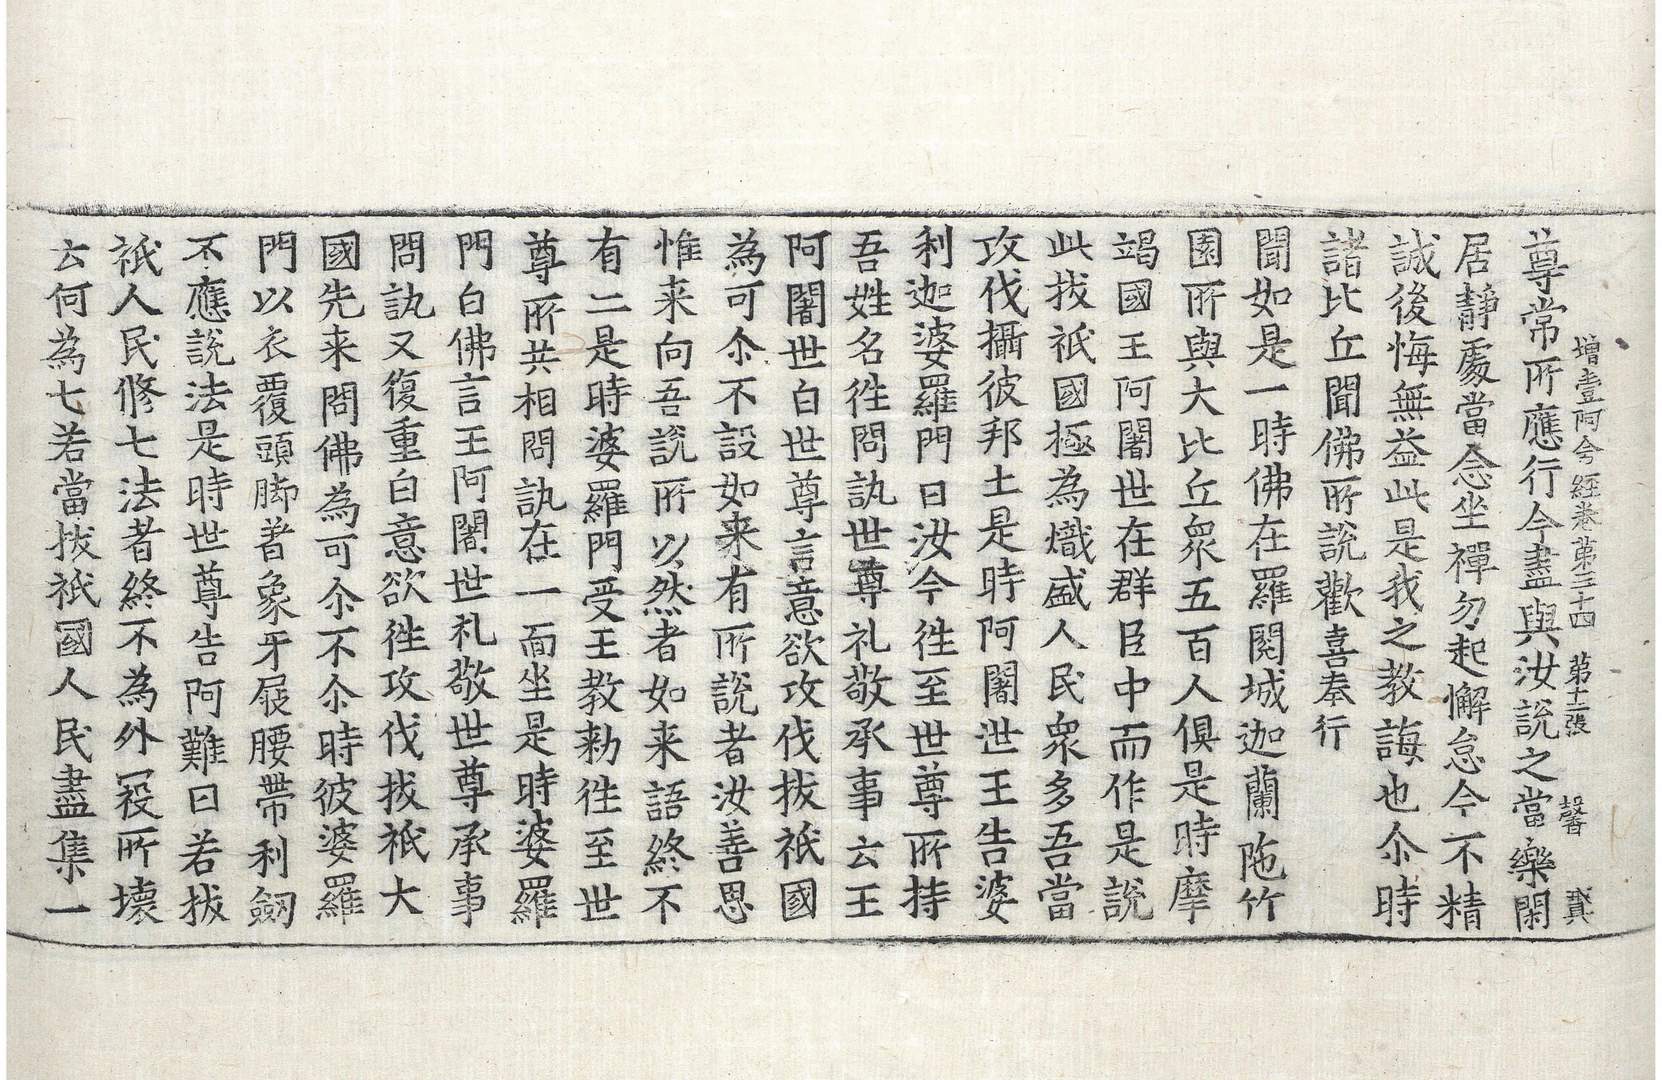 增壹阿含經卷第三十四 第十二張 馨
尊常所應行今盡與汝說之當樂閑
居靜處當念坐禪勿起懈怠今不精
誠後悔無益此是我之教誨也尒時
諸比丘聞佛所說歡喜奉行
聞如是一時佛在羅閱城迦蘭陁竹
園所與大比丘衆五百人俱是時摩
竭國王阿闍世在群臣中而作是說
此拔祇國極為熾盛人民衆多吾當
攻伐攝彼邦土是時阿闍世王告婆
利迦婆羅門曰汝今徃至世尊所持
吾姓名徃問訊世尊礼敬承事云王
阿闍世白世尊言意欲攻伐拔祇國
為可尒不設如来有所說者汝善思
惟来向吾說所以然者如来語終不
有二是時婆羅門受王教勑徃至世
尊所共相問訊在一面坐是時婆羅
門白佛言王阿闍世礼敬世尊承事
問訊又復重白意欲徃攻伐拔祇大
國先来問佛為可尒不尒時彼婆羅
門以衣覆頭脚著象牙屐腰帶利劒
不應說法是時世尊告阿難曰若拔
祇人民修七法者終不為外寇所壞
云何為七若當拔祇國人民盡集一